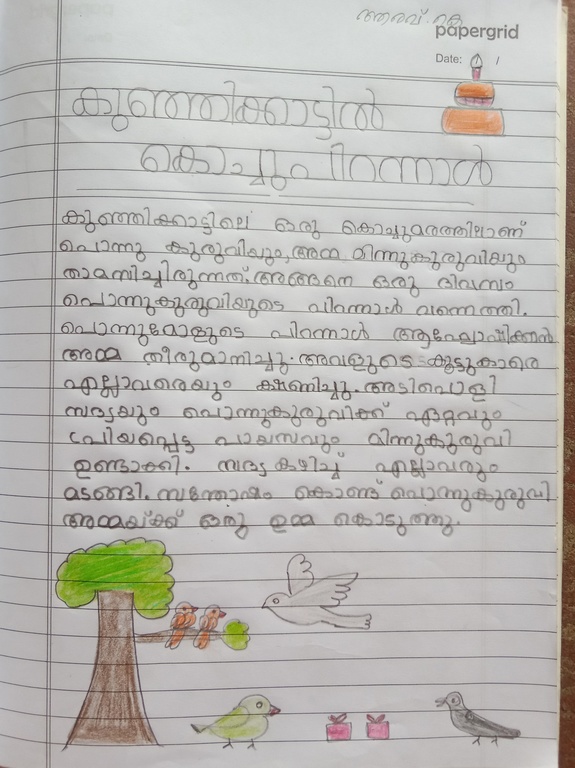 ആരവ്.
papergrid
Date: /
കുഞ്ഞിക്കാട്ടിൽ
കൊച്ചുപിറന്നാൾ
കുഞ്ഞിക്കാട്ടിലെ ഒരു കൊച്ചുമരത്തിലാണ്
പൊന്നു കുരുവിയും, അമ്മ മിന്നുകുരുവിയും
താമസിച്ചിരുന്നത്. അങ്ങനെ ഒരു ദിവസം
പൊന്നുകുരുവിയുടെ പിറന്നാൾ വന്നെത്തി.
പൊന്നുമോളുടെ പിറന്നാൾ ആഘോഷിക്കാൻ
അമ്മ തീരുമാനിച്ചു. അവളുടെ കൂട്ടുകാരെ
എല്ലാവരെയും ക്ഷണിച്ചു. അടിപൊളി
സദ്യയും പൊന്നുകുരുവിക്ക് ഏറ്റവും
പ്രിയപ്പെട്ട പായസവും മിന്നുകുരുവി
ഉണ്ടാക്കി. സദ്യ കഴിച്ച് എല്ലാവരും
മടങ്ങി. സന്തോഷം കൊണ്ട് പൊന്നുകുരുവി
അമ്മയ്ക്ക് ഒരു ഉമ്മ കൊടുത്തു.